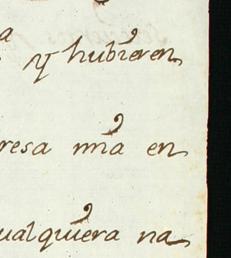 a
y hubieren
resa nr̃a en
ualquiera na